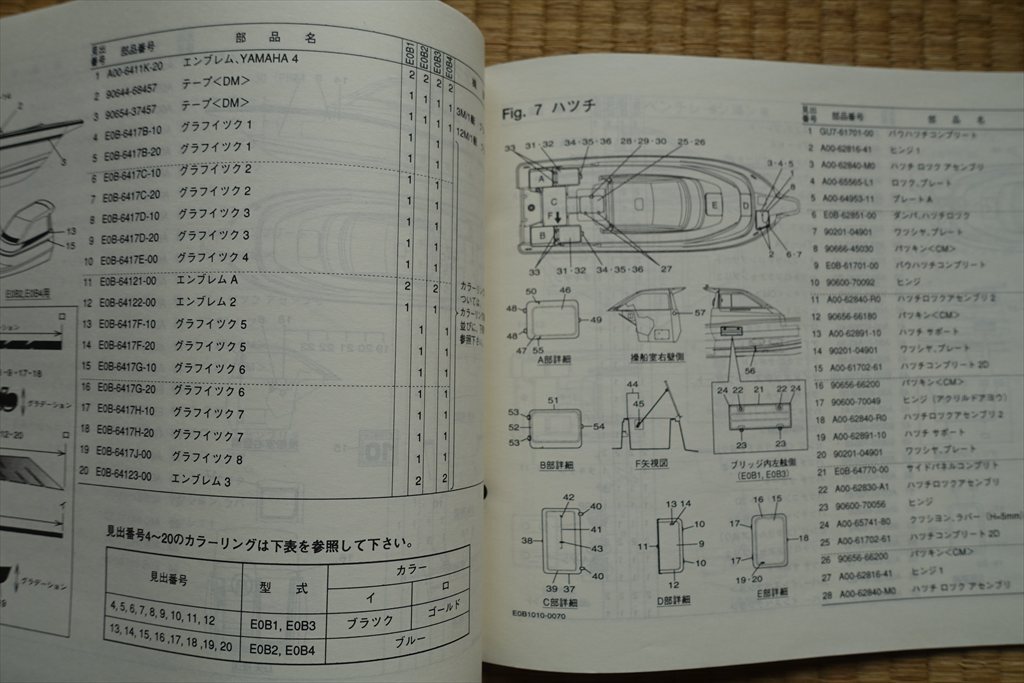 見出番号 部品番号 部 品 名 E0B1 E0B2 E0B3 E0B4
1 A00-6411K-20 エンブレム、YAMAHA 4 2 2 2 2
2 90644-68457 テープ<DM> 1 1 1 1
3 90654-37457 テープ<DM>
4 E0B-6417B-10 グラフイツク 1
5 E0B-6417B-20 グラフイツク 1
6 E0B-6417C-10 グラフイツク 2
7 E0B-6417C-20 グラフイツク 2
8 E0B-6417D-10 グラフイツク 3
9 E0B-6417D-20 グラフイツク 3
10 E0B-6417E-00 グラフイツク 4
11 E0B-64121-00 エンブレム A 2 2
12 E0B-64122-00 エンブレム 2 1 1
13 E0B-6417F-10 グラフイツク 5 1 1
14 E0B-6417F-20 グラフイツク 5 1 1
15 E0B-6417G-10 グラフイツク 6 1 1
16 E0B-6417G-20 グラフイツク 6 1 1
17 E0B-6417H-10 グラフイツク 7 1 1
18 E0B-6417H-20 グラフイツク 7 1 1
19 E0B-6417J-00 グラフイツク 8 1 1
20 E0B-64123-00 エンブレム 3 2 2
カラーリング
ついては、
カラーリング
並びに、下
参照下さい。
見出番号4〜20のカラーリングは下表を参照して下さい。
見出番号 型 式 カラー
イ ロ
4, 5, 6, 7, 8, 9, 10, 11, 12 E0B1, E0B3 ブラツク ゴールド
13, 14, 15, 16 ,17, 18 ,19, 20 E0B2, E0B4 ブルー
2
3
13
15
E0B2, E0B4用
ロ
グラデーション
イ
グラデーション
Fig. 7 ハツチ
33 31・32 34・35・36 28・29・30 25・26
3・4・5
A
C
F
B
E
D
2
6・7
33 31・32 34・35・36 27
50 46
48
49
48
47 55
A部詳細
57
操船室右壁側
56
24 22 21 22 24
23 23
ブリッジ内左舷側
(E0B1, E0B3)
51
53
52
53
54
B部詳細
44
45
F矢視図
42
40
41
38
43
40
39 37
C部詳細
13 14
10
11
9
10
12
D部詳細
16 15
17
18
17
19・20
E部詳細
E0B1010-0070
見出番号 部品番号 部 品 名
1 GU7-61701-00 バウハツチコンプリート
2 A00-62816-41 ヒンジ 1
3 A00-62840-M0 ハツチ ロツク アセンブリ
4 A00-65565-L1 ロツク、プレート
5 A00-64953-11 プレート A
6 E0B-62851-00 ダンパ、ハツチロツク
7 90201-04901 ワツシヤ、プレート
8 90666-45030 パツキン<CM>
9 E0B-61701-00 バウハツチコンプリート
10 90600-70092 ヒンジ
11 A00-62840-R0 ハツチロツクアセンブリ 2
12 90656-66180 パツキン<CM>
13 A00-62891-10 ハツチ サポート
14 90201-04901 ワツシヤ、プレート
15 A00-61702-61 ハツチコンプリート 2D
16 90656-66200 パツキン<CM>
17 90600-70049 ヒンジ (アクリルドアヨウ)
18 A00-62840-R0 ハツチロツクアセンブリ 2
19 A00-62891-10 ハツチ サポート
20 90201-04901 ワツシヤ、プレート
21 E0B-64770-00 サイドパネルコンプリト
22 A00-62830-A1 ハツチロツクアセンブリ
23 90600-70056 ヒンジ
24 A00-65741-80 クツシヨン、ラバー (H=8mm)
25 A00-61702-61 ハツチコンプリート 2D
26 90656-66200 パツキン<CM>
27 A00-62816-41 ヒンジ 1
28 A00-62840-M0 ハツチ ロツク アセンブリ